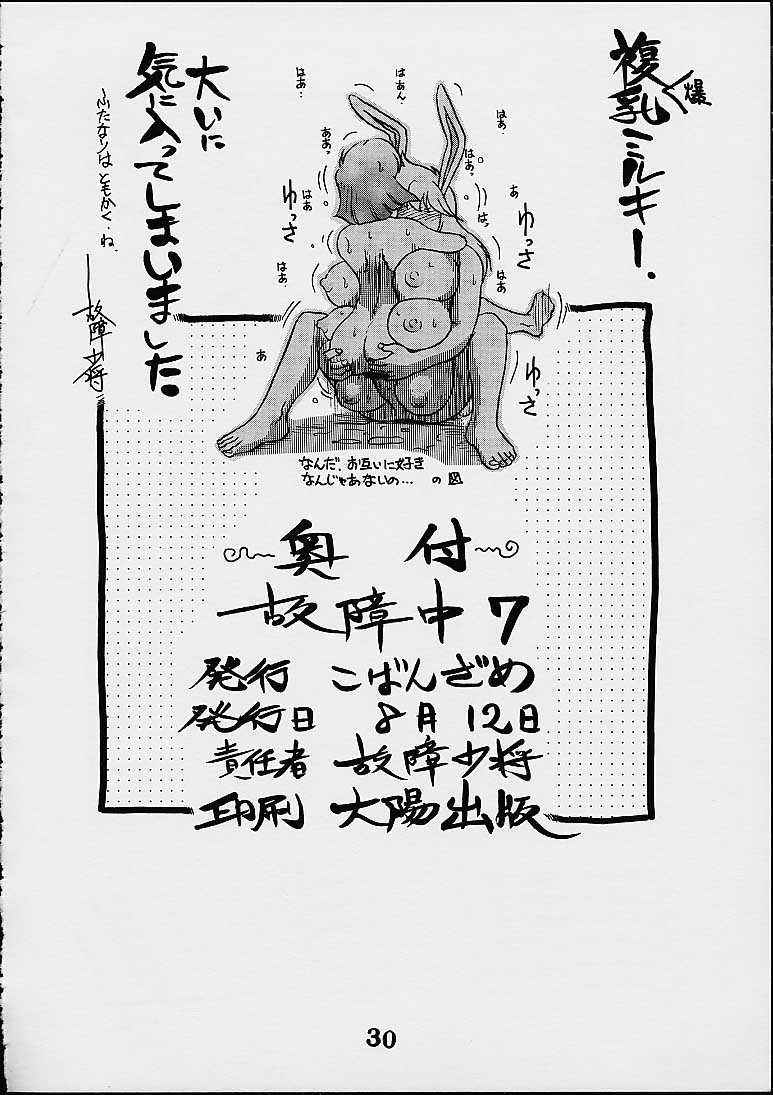 複乳ミルキー、
爆
大いに
気に入ってしまいました。
～ふたなりはともかく、ね、
故障少将
はあ…
はあん、
はあ、
ああっ
はぁっ
はあ
あ
はっ
ゆっさ
ゆっさ
はあ、
はあ
あ
ゆっさ
なんだ、お互いに好き
なんじゃあないの…の図
奥付
故障中7
発行 こばんざめ
発行日 8月12日
責任者 故障少将
印刷 大陽出版
30